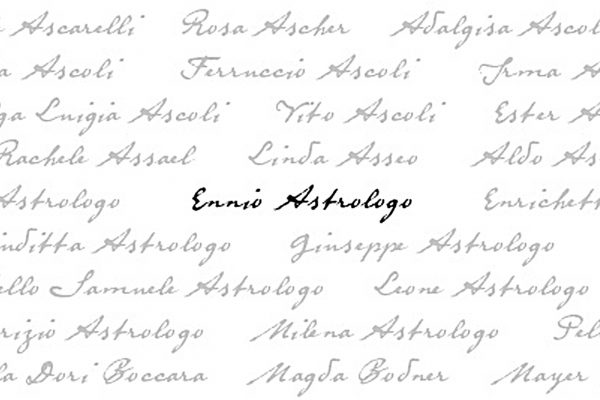 Ascarelli Rosa Ascher Adalgisa
Ascoli Ferruccio Ascoli Irma
Luigia Ascoli Vito Ascoli Ester
Rachele Assael Linda Asseo Aldo
Astrologo Ennio Astrologo
Astrologo Giuseppe Astrologo
Samuele Astrologo Leone Astrologo
Astrologo Milena Astrologo
Dori Boccara Magda Bodner Mayer